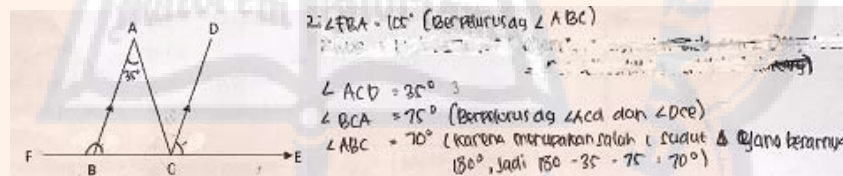 A
D
35°
F
B
C
E
2. ∠FBA = 105° (Berpelurus dg ∠ABC)
∠ ACD = 35°
∠ BCA = 75° (Berpelurus dg ∠Acd dan ∠Dce)
∠ ABC = 70° (karena merupakan salah 1 sudut Δ yang besarnya
180°, Jadi 180 - 35 - 75 = 70°)